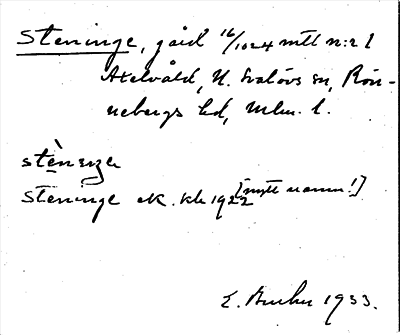 Steninge, gård 16/1024 mtl n:r 1
Axelvåld, N. Svalövs sn, Rön-
nebergs hd, Mlm. l.
stènənɡə
Steninge ek. kk 1922 [nytt namn!]
E. 1933.